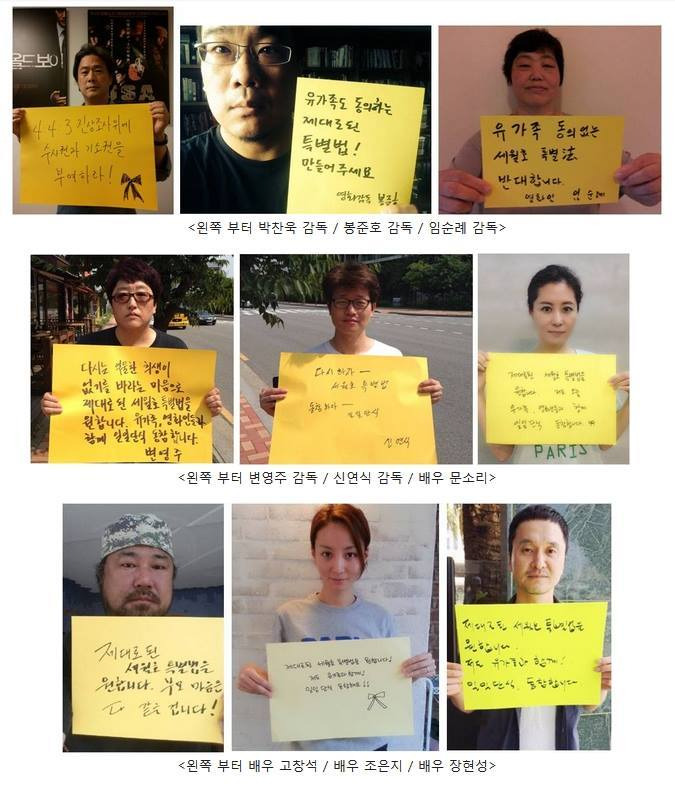 올드보이
4 4 3 진상조사위에
수사권과 기소권을
부여하라!
유가족도 동의하는
제대로된
특별법!
만들어주세요
영화감독 봉준호
유가족 동의없는
세월호 특별法
반대합니다.
영화인 임순례
<왼쪽 부터 박찬욱 감독 / 봉준호 감독 / 임순례 감독>
다시는 억울한 희생이
없기를 바라는 마음으로
제대로된 세월호특별법을
원합니다. 유가족, 영화인들과
함께 일일단식 동참합니다.
변영주
세월호 특별법
동참하다 일일단식
신연식
제대로된 세월호 특별법을
원합니다. 저도 오늘
유가족, 영화인들과 함께
일일단식 동참합니다.
PARIS
<왼쪽 부터 변영주 감독 / 신연식 감독 / 배우 문소리>
제대로된
세월호 특별법을
원합니다. 부모 마음은
다 같을 겁니다!
제대로된 세월호 특별법을 원합니다!
저도 유가족과 함께!
일일단식 동참해요!!
제대로된 세월호 특별법을
원합니다.
저도 유가족과 함께!
일일단식, 동참합니다
<왼쪽 부터 배우 고창석 / 배우 조은지 / 배우 장현성>